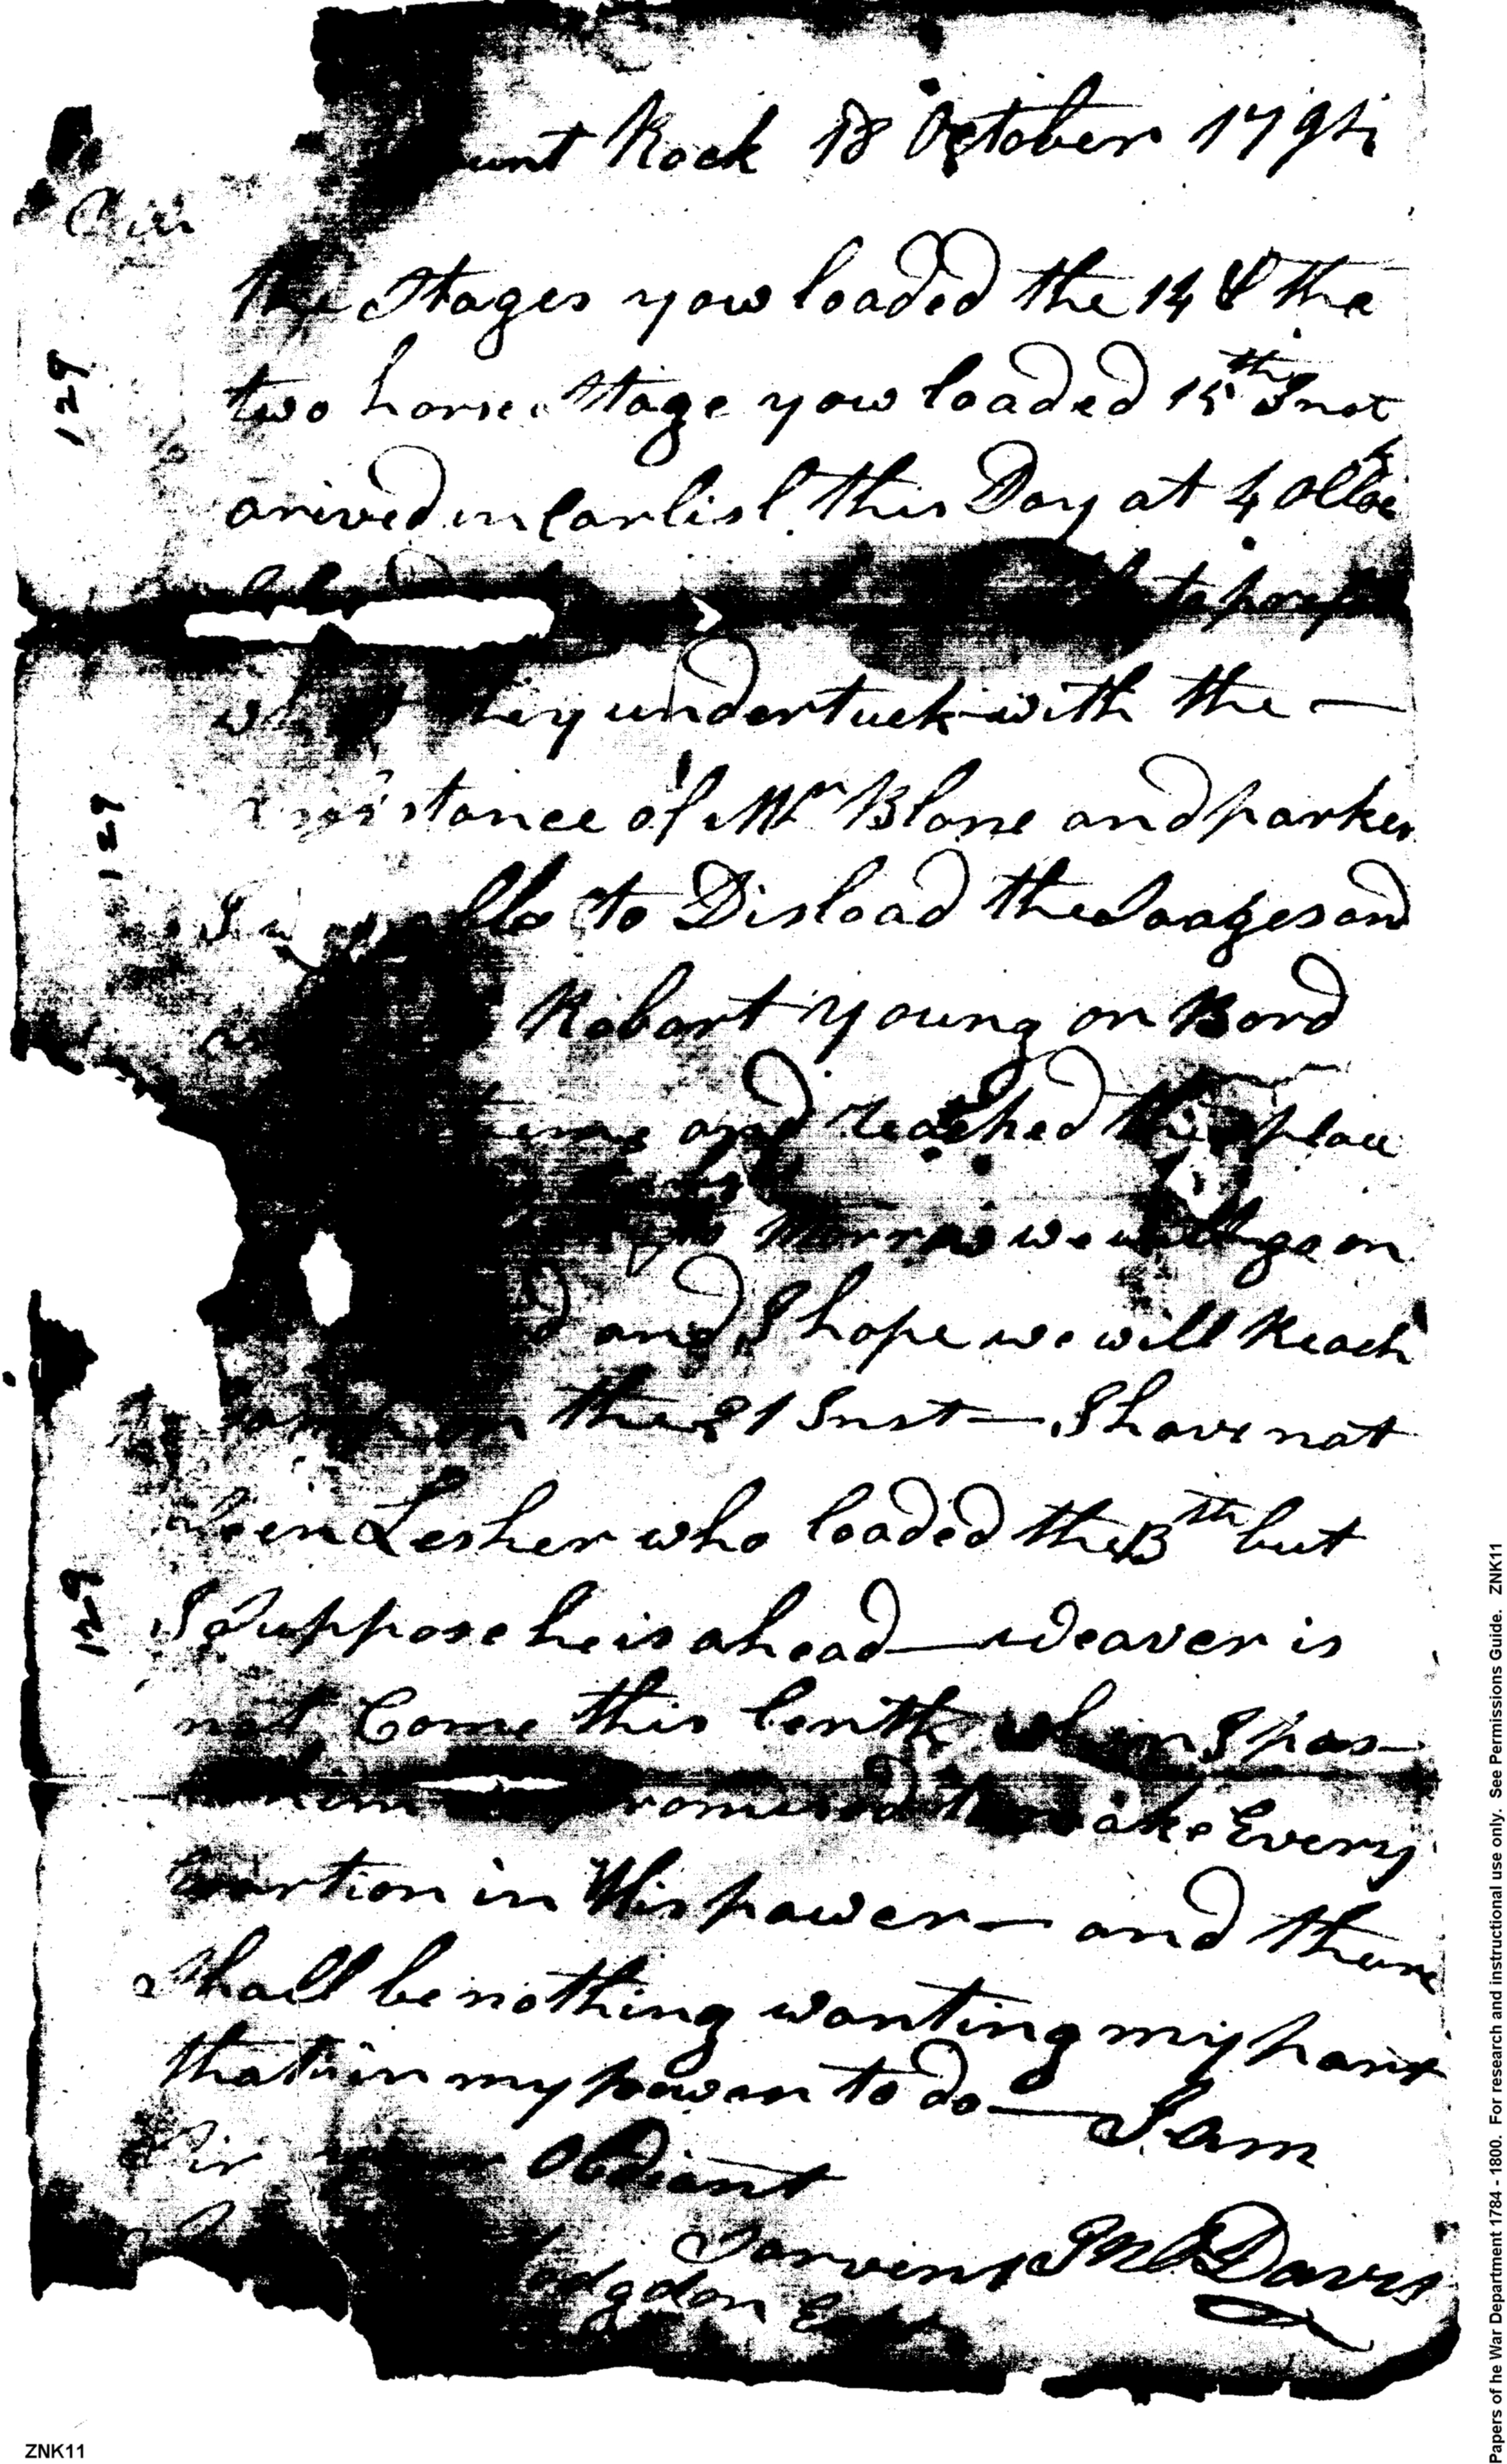 unt Rock 18 October 1794
Sir
the Stages you loaded the 14 & the
two horse Stage you loaded 15th Inst
arived in Carlisl this Day at 4 oClock
what they undertuck with the —
assistance of Mr Blane and parker
I was able to Disload the Saages and
Robart young on Bord
and reached this place
Morrow we will go on
and I hope we will Reach
on the 21 Inst — I have not
Seen Lesher who loaded the 13th but
I Suppose he is ahead — Weaver is
not Come this lenth when I pas—
him promised to make Every
Exartion in His power — and there
Shall be nothing wanting my part
that is in my power to do — I am
Sir your Obdiant
Sarvent Jno Davis
odgdon Esqr
129
129
129
ZNK11
Papers of he War Department 1784 - 1800. For research and instructional use only. See Permissions Guide. ZNK11